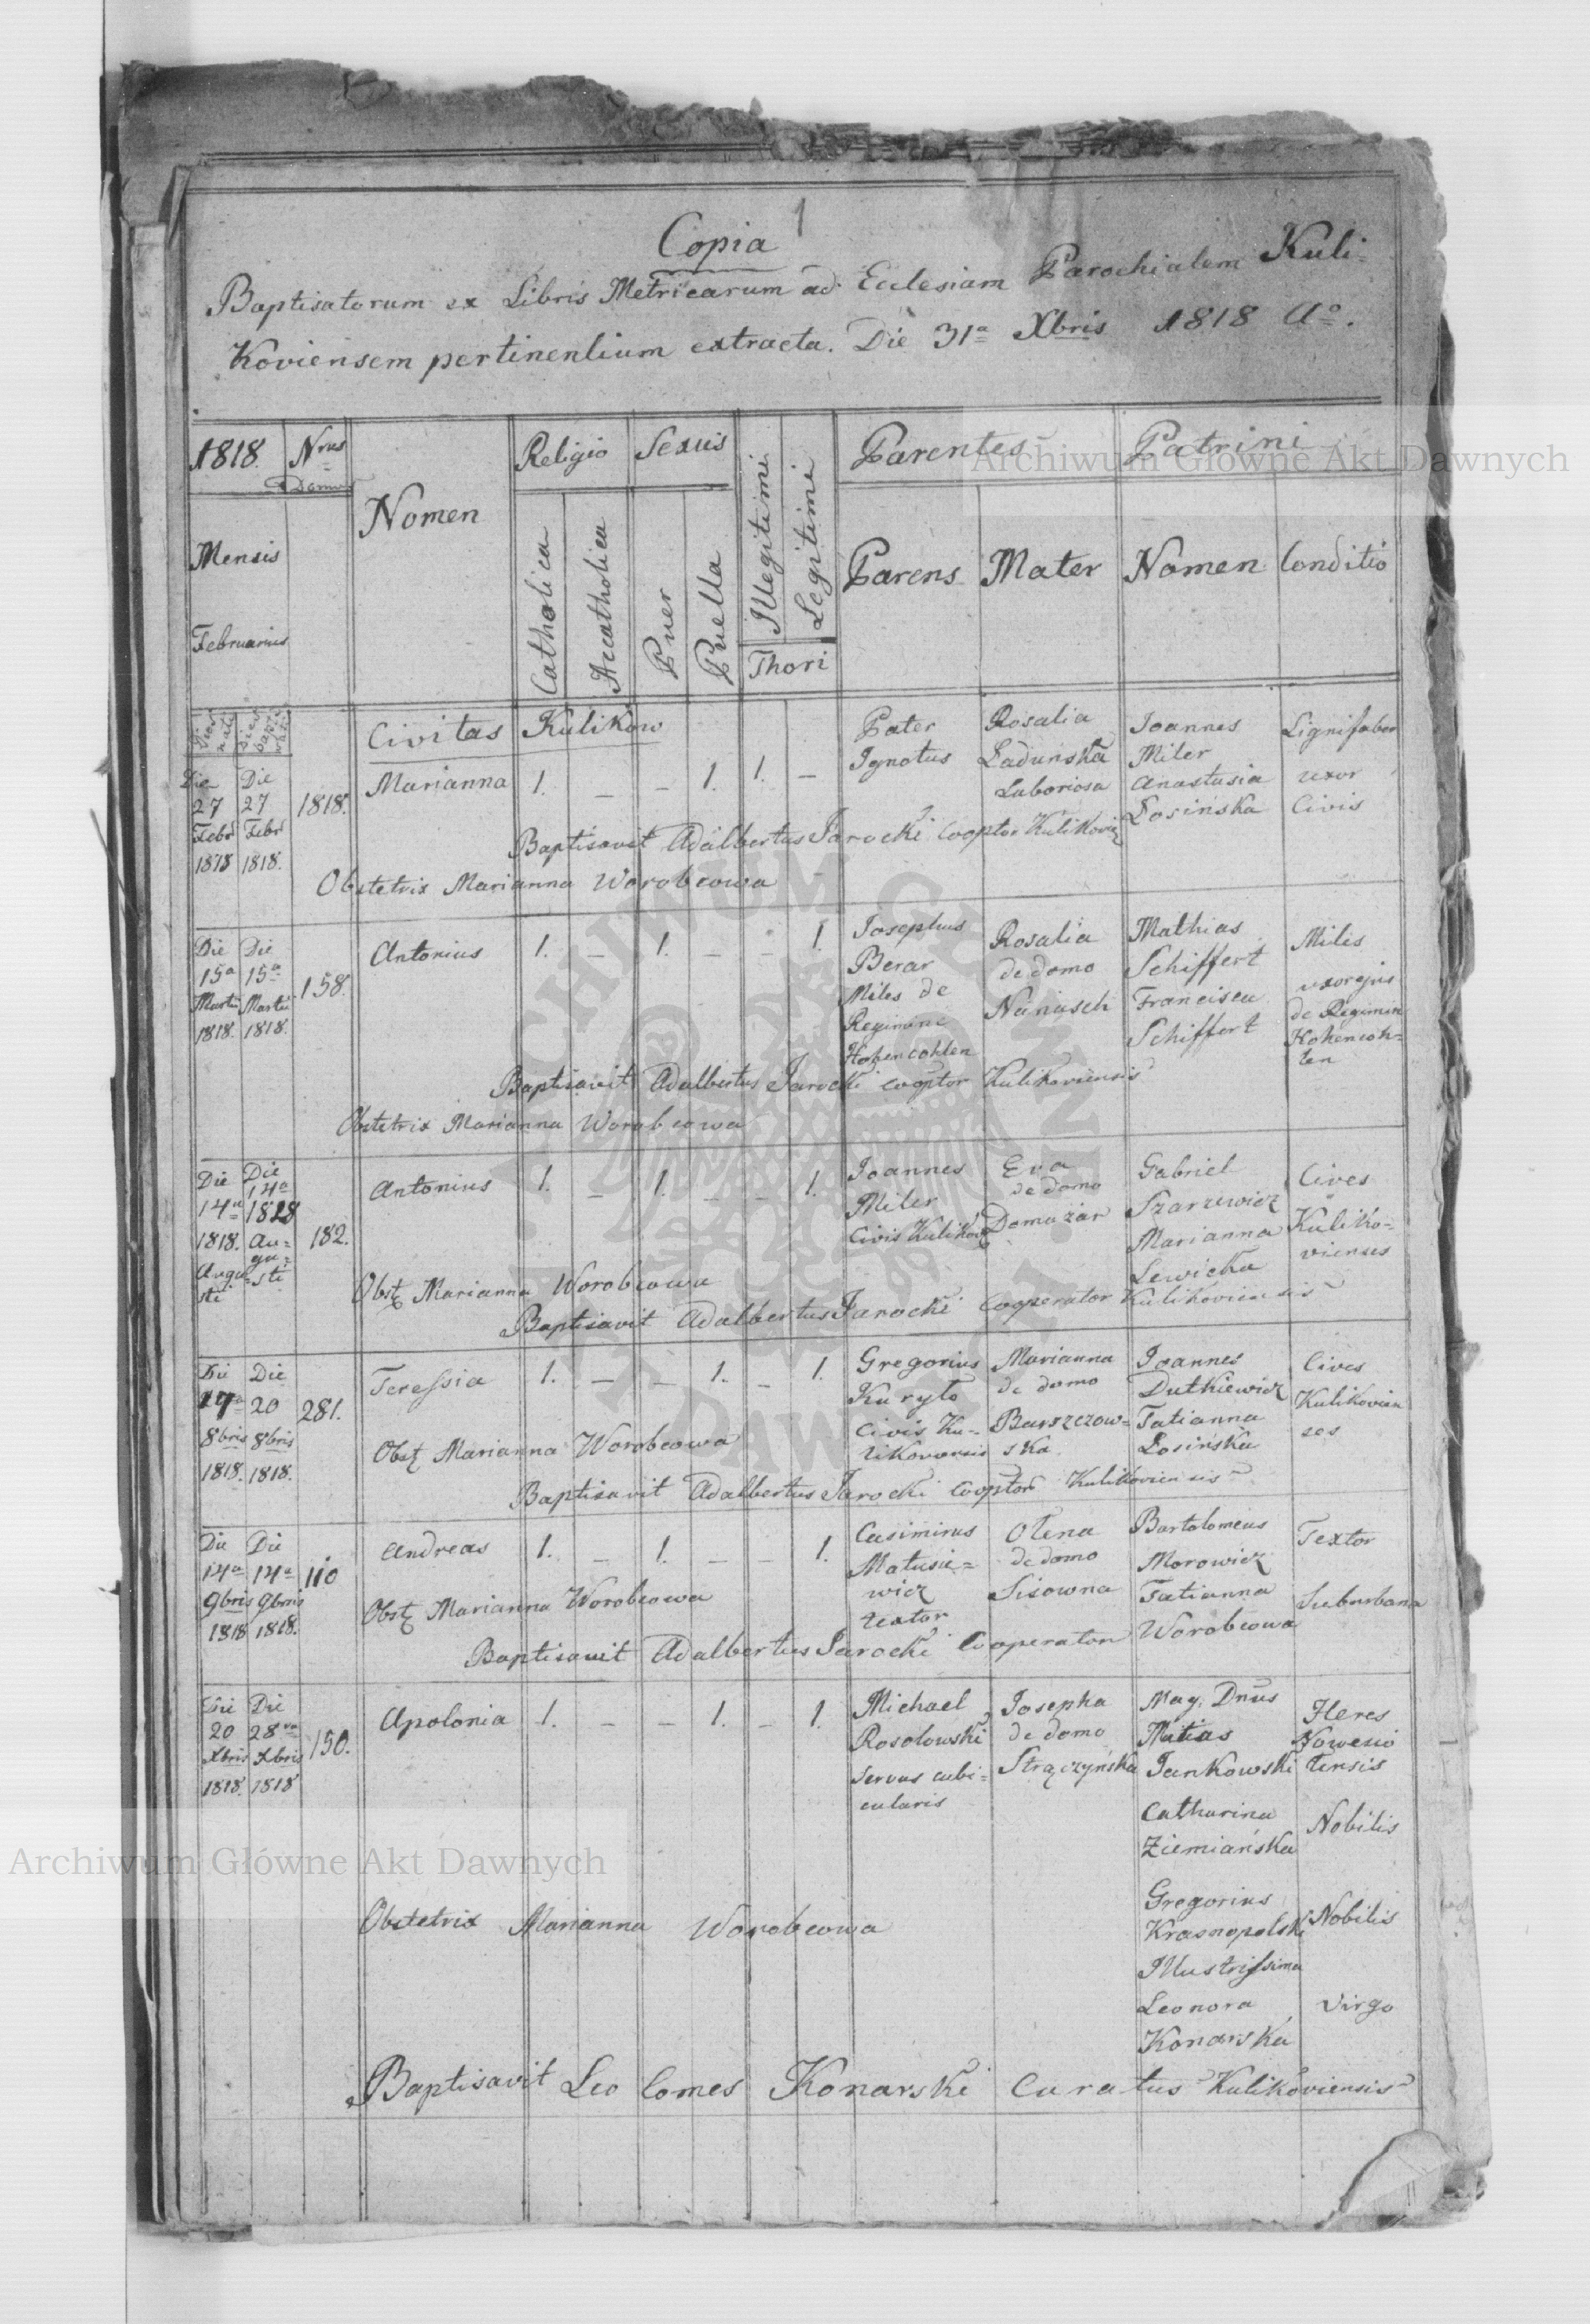 1
Copia
Baptisatorum ex Libris Metricarum ad Ecclesiam Parochialem Kuli-
koviensem pertinentium extracta. Die 31a Xbris 1818 Ao.
1818. Nrus Domus Nomen Religio Sexus Illegitimi Legitimi Parentes Patrini
Mensis Catholica Accatholica Puer Puella Thori Parens Mater Nomen Conditio
Februarius
Civitas Kulikow
Die 27 Febr 1818 Die 27 Febr 1818. 1818. Marianna 1. – – 1. 1. –
Pater Ignotus
Rosalia Ladunska Laboriosa
Joannes Miler Anastasia Łosinska
Lignifaber uxor Civis
Baptisavit Adalbertus Jarocki Cooptor
Obstetrix Marianna Worobcowa
Die 15a Martii 1818. Die 15a Martii 1818. 158. Antonius 1. – 1. – – 1.
Josephus Berar Miles de Regimine Hohencohlen
Rosalia de domo
Mathias Schiffert Francisca Schiffert
Milis uxor ejus de Regimin Hohencoh-
len
Baptisavit Adalbertus Jarocki cooptor Kulikoviensis
Obstetrix Marianna Worobcowa
Die 14a 1818. Augu
sti Die 14a 1818 Au-
gu-
sti 182. Antonius 1. – 1. – – 1.
Joannes Miler Civis
Eva de domo Domazar
Gabriel Szarzewicz Marianna Lewicka
Cives Kuliko-
vienses
Obst Marianna Worobcowa
Baptisavit Adalbertus Jarocki Cooperator Kulikoviensis
Die 17a 8bris 1818. Die 20 8bris 1818. 281. Teressia 1. – – 1. – 1.
Gregorius Kuryło Civis Ku-
likoviensis
Marianna de domo Barszczow-
ska
Joannes Dutkiewicz Tatianna Łosińska
Cives Kulikovien
ses
Obst Marianna Worobcowa
Baptisavit Adalbertus Jarocki Cooptor Kulikoviensis
Die 14a 9bris 1818 Die 14a 9bris 1818. 110 Andreas 1. – 1. – – 1.
Casimirus Matusie-
wicz textor
Olena de domo Lisowna
Bartolomeus Morowicz Tatianna Worobcowa
Textor Suburbana
Obst Marianna Worobcowa
Baptisavit Adalbertus Jarocki Cooperator
Die 20 Xbris 1818. Die 28va Xbris 1818 150. Apolonia 1. – – 1. – 1.
Michael Rosolowski Servus cubi-
cularis
Josepha de domo Strączyńska
Mag. Dnus Matias Jankowski
Heres
Catharina Ziemiańska Nobilis
Gregorius Krasnopolski Nobilis
Illustrissima Leonora Konarska Virgo
Obstetrix Marianna Worobcowa
Baptisavit Leo Comes Konarski Curatus Kulikoviensis
Archiwum Główne Akt Dawnych
Archiwum Główne Akt Dawnych
ARCHIWUM GŁÓWNE AKT DAWNYCH